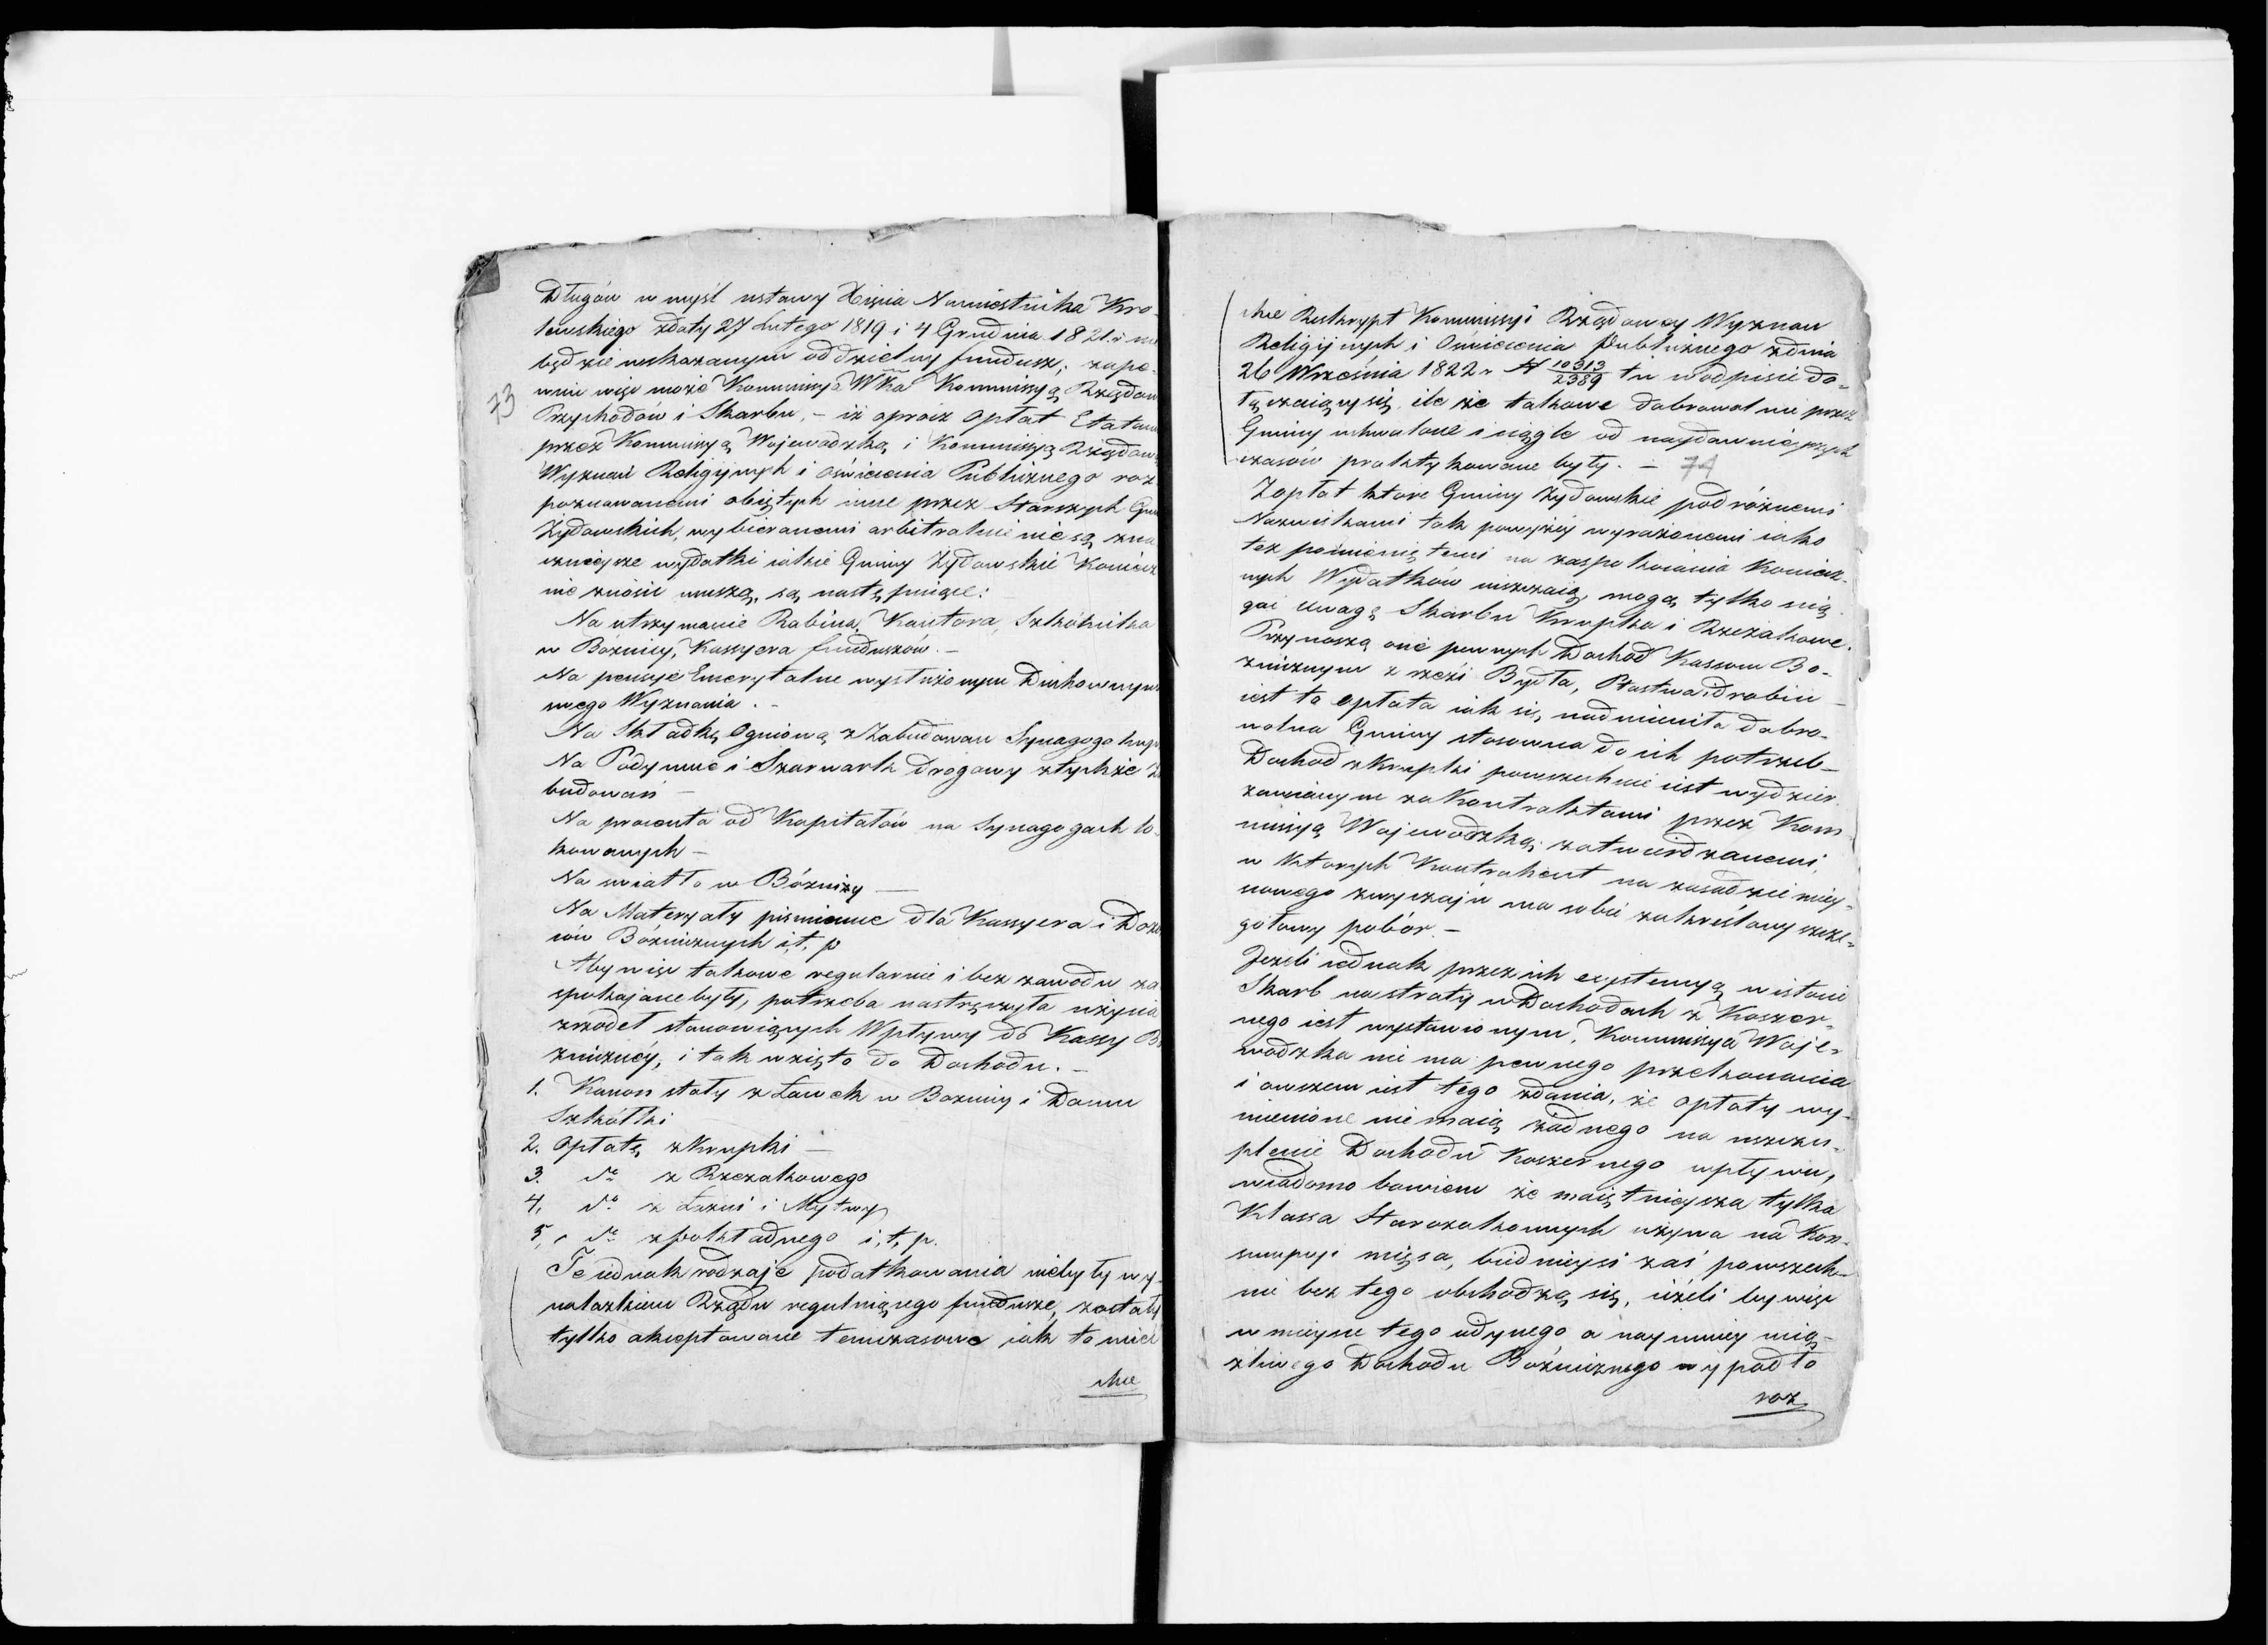 Długów w myśl ustawy Xięcia Namiestnika Kro-
lewskiego zdaty 27 Lutego 1819 i 4 Grudnia 1821 r nie
będzie wskazanym oddzielny fundusz; zape-
wnić więc może Kommissya Wzka Kommissyą Rządow
73
Przychodow i Skarbu, – iż oprócz Opłat Etatem
przez Kommissyą Wojewodzką i Kommissyą Rządow
Wyznań Religijnych i Oświecenia Publicznego roz
poznawanemi objętych inne przez Starszych Gm
Żydowskich, wybieranemi arbitralnie nie są zna
cznieysze wydatki iakie Gminy Żydowskie Koniecz
nie znosić muszą, są następuiące:
Na utrzymanie Rabina, Kantora, Szkolnika
w Bóżnicy, Kassyera funduszów. –
Na pensye Emerytalne wysłużonym Duchownym
swego Wyznania. –
Na Składkę Ogniową z Zabudowań Synagogo
Na Podymne i Szarwark drogowy ztychże Za
budowań –
Na procenta od Kapitałów na Synagogach lo-
kowanych –
Na swiatło w Bóżnicy –
Na Materyały pismienne dla Kassyera i Dozo
rów Bóżniczych i, t, p
Aby więc takowe regularnie i bez zawodu za
spokajane były, potrzeba nastręczyła użycia
zrzódeł stanowiących Wpływy do Kassy Bo
żniczey; i tak wzięto do Dochodu. –
1. Kanon stały z Ławek w Boznicy i Domu
Szkółki
2. Opłatę z Krupki –
3. do z Rzezakowego
4. do z Łazni i Mytwy
5. do z pokładnego i, t, p.
Te iednak rodzaje podatkowania niebyły wy-
nalazkiem Rządu reguluiącego fundusze, zostały
tylko akceptowane temczasowo iak to mieć
chce
chce Reskrypt Kommissyi Rządowey Wyznań
Religijnych i Oświecenia Publicznego zdnia
26 Września 1822 r N 10313/2389 tu wodpisie do-
łączaiący się, ile że takowe dobrowolnie przez
Gminy uchwalone i ciągle od naydawnieyszych
czasów praktykowane były. – 74
Zopłat które Gminy Żydowskie pod różnemi
Nazwiskami tak powyżey wyrażonemi iako
też pominiętemi na zaspokoienie Koniecz-
nych Wydatków uiszczaią, mogą tylko scią-
gać uwagę Skarbu Krupka i Rzezakowe.
Przynoszą one pewnych Dochod Kassom Bo-
żniczym z rzezi Bydła, Ptastwa i drobiu –
iest to opłata iak się nadmieniło dobro-
wolna Gminy stosowna do ich potrzeb –
Dochod z Krupki powszechnie iest wydzier-
żawianym za Kontraktami przez Kom-
missyą Wojewodzką zatwierdzanemi,
w ktorych Kontrahent na zasadzie miey-
scowego zwyczaju ma sobie zakreślony szcze-
gołowy pobór. –
Jeżeli iednak przez ich exystencyą w istocie
Skarb na straty w Dochodach z Koszer-
nego iest wystawionym, Kommissya Woje-
wodzka nie ma pewnego przekonania
i owszem iest tego zdania, że opłaty wy-
mienione nie maią żadnego na uszczu-
plenie Dochodu Koszernego wpływu,
wiadomo bowiem że maiętnieysza tylko
Klassa Starozakonnych używa na Kon-
sumpcyi mięsa, biednieysi zaś powszech-
nie bez tego obchodzą się, ieżeli by więc
w mieysce tego iedynego a naymniey ucią-
żliwego Dochodu Bóżniczego wypadło
roz